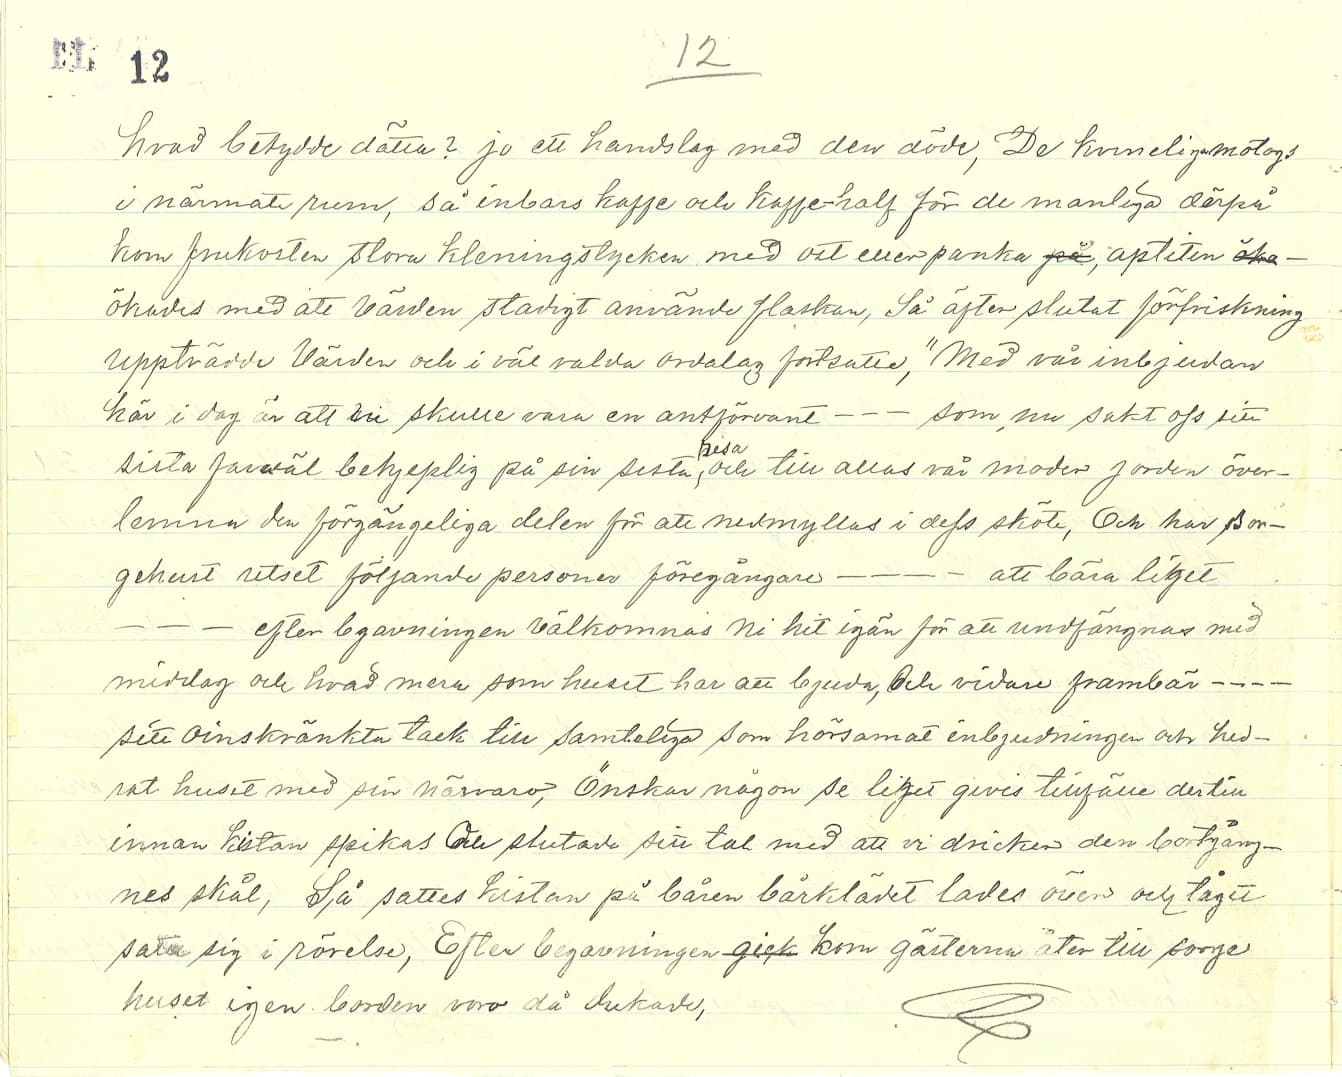 12
12
hvad betydde dätta? jo ett handslag med den döde, De kvineliga motogs
i närmate rum, så inbars kaffe och kaffe-half för de manliga därpå
kom frukosten stora kleningstycken med ost eller panka på, aptiten öka-
ökades med att Värden stadigt använde flaskan, Så äfter slutat förfriskning
uppträdde Värden och i väl valda ordalag fortsatte, "Med vår inbjudan
här i dag är att vi skulle vara en antförvant --- som nu sakt ofs sitt
sista farväl behjeplig på sin sista resa, och till allas vår moder jorden över-
lemna den förgängeliga delen för att nedmyllas i defs sköte, Och har Sor-
gehust utset följande personer föregångare ---- att bära liket
--- efter bgavningen Välkomnas Ni hit igän för att undfängnas med
middag och hvad mera som huset har att bjuda, Och vidare frambär ----
sitt oinskränkta tack till samtliga som hörsamat inbjudningen och hed-
rat huset med sin närvaro, Önskar någon se liket givis tillfälle dertill
innan kistan spikas Och slutade sitt tal med att vi dricker den bortgång-
nes skål, Så sattes kistan på båren bårklädet lades över och tåget
satte sig i rörelse, Efter begavningen gick kom gästerna åter till sorge
huset igen borden voro då dukade,